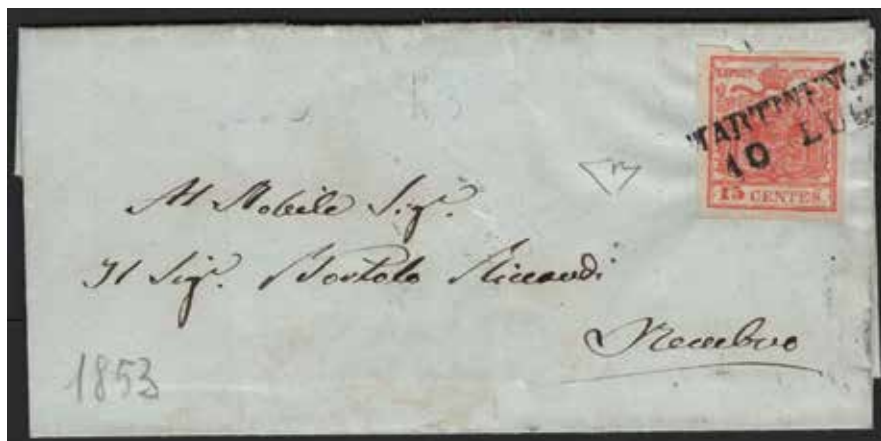 MARTINENGO
10 LUG
15 CENTES.
Al Nobile Sigr.
Il Sigr. Bortolo Riccardi
Nembro
1853